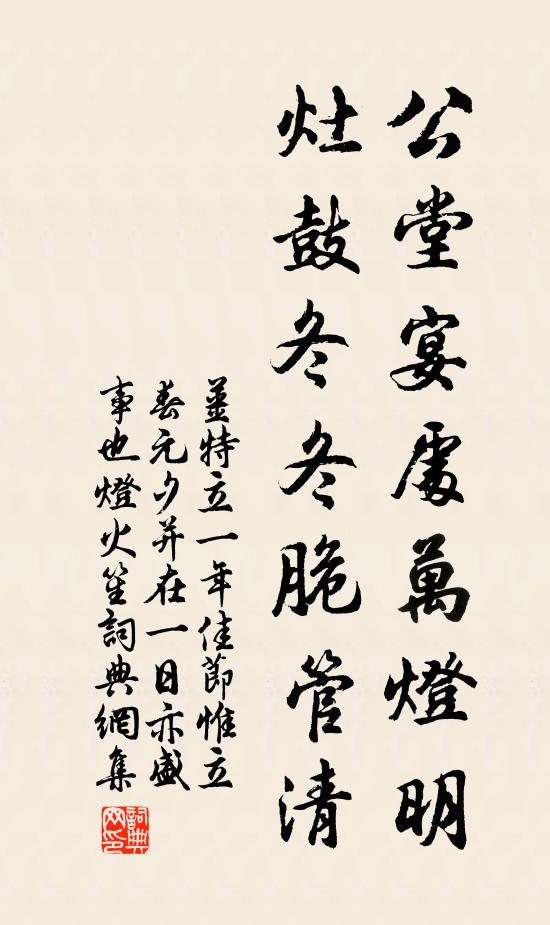 公堂宴處萬燈明
灶鼓冬冬脆管清
姜特立一年佳節惟立
春元夕并在一日亦盛
事也燈火笙詞典網集
詞典网印